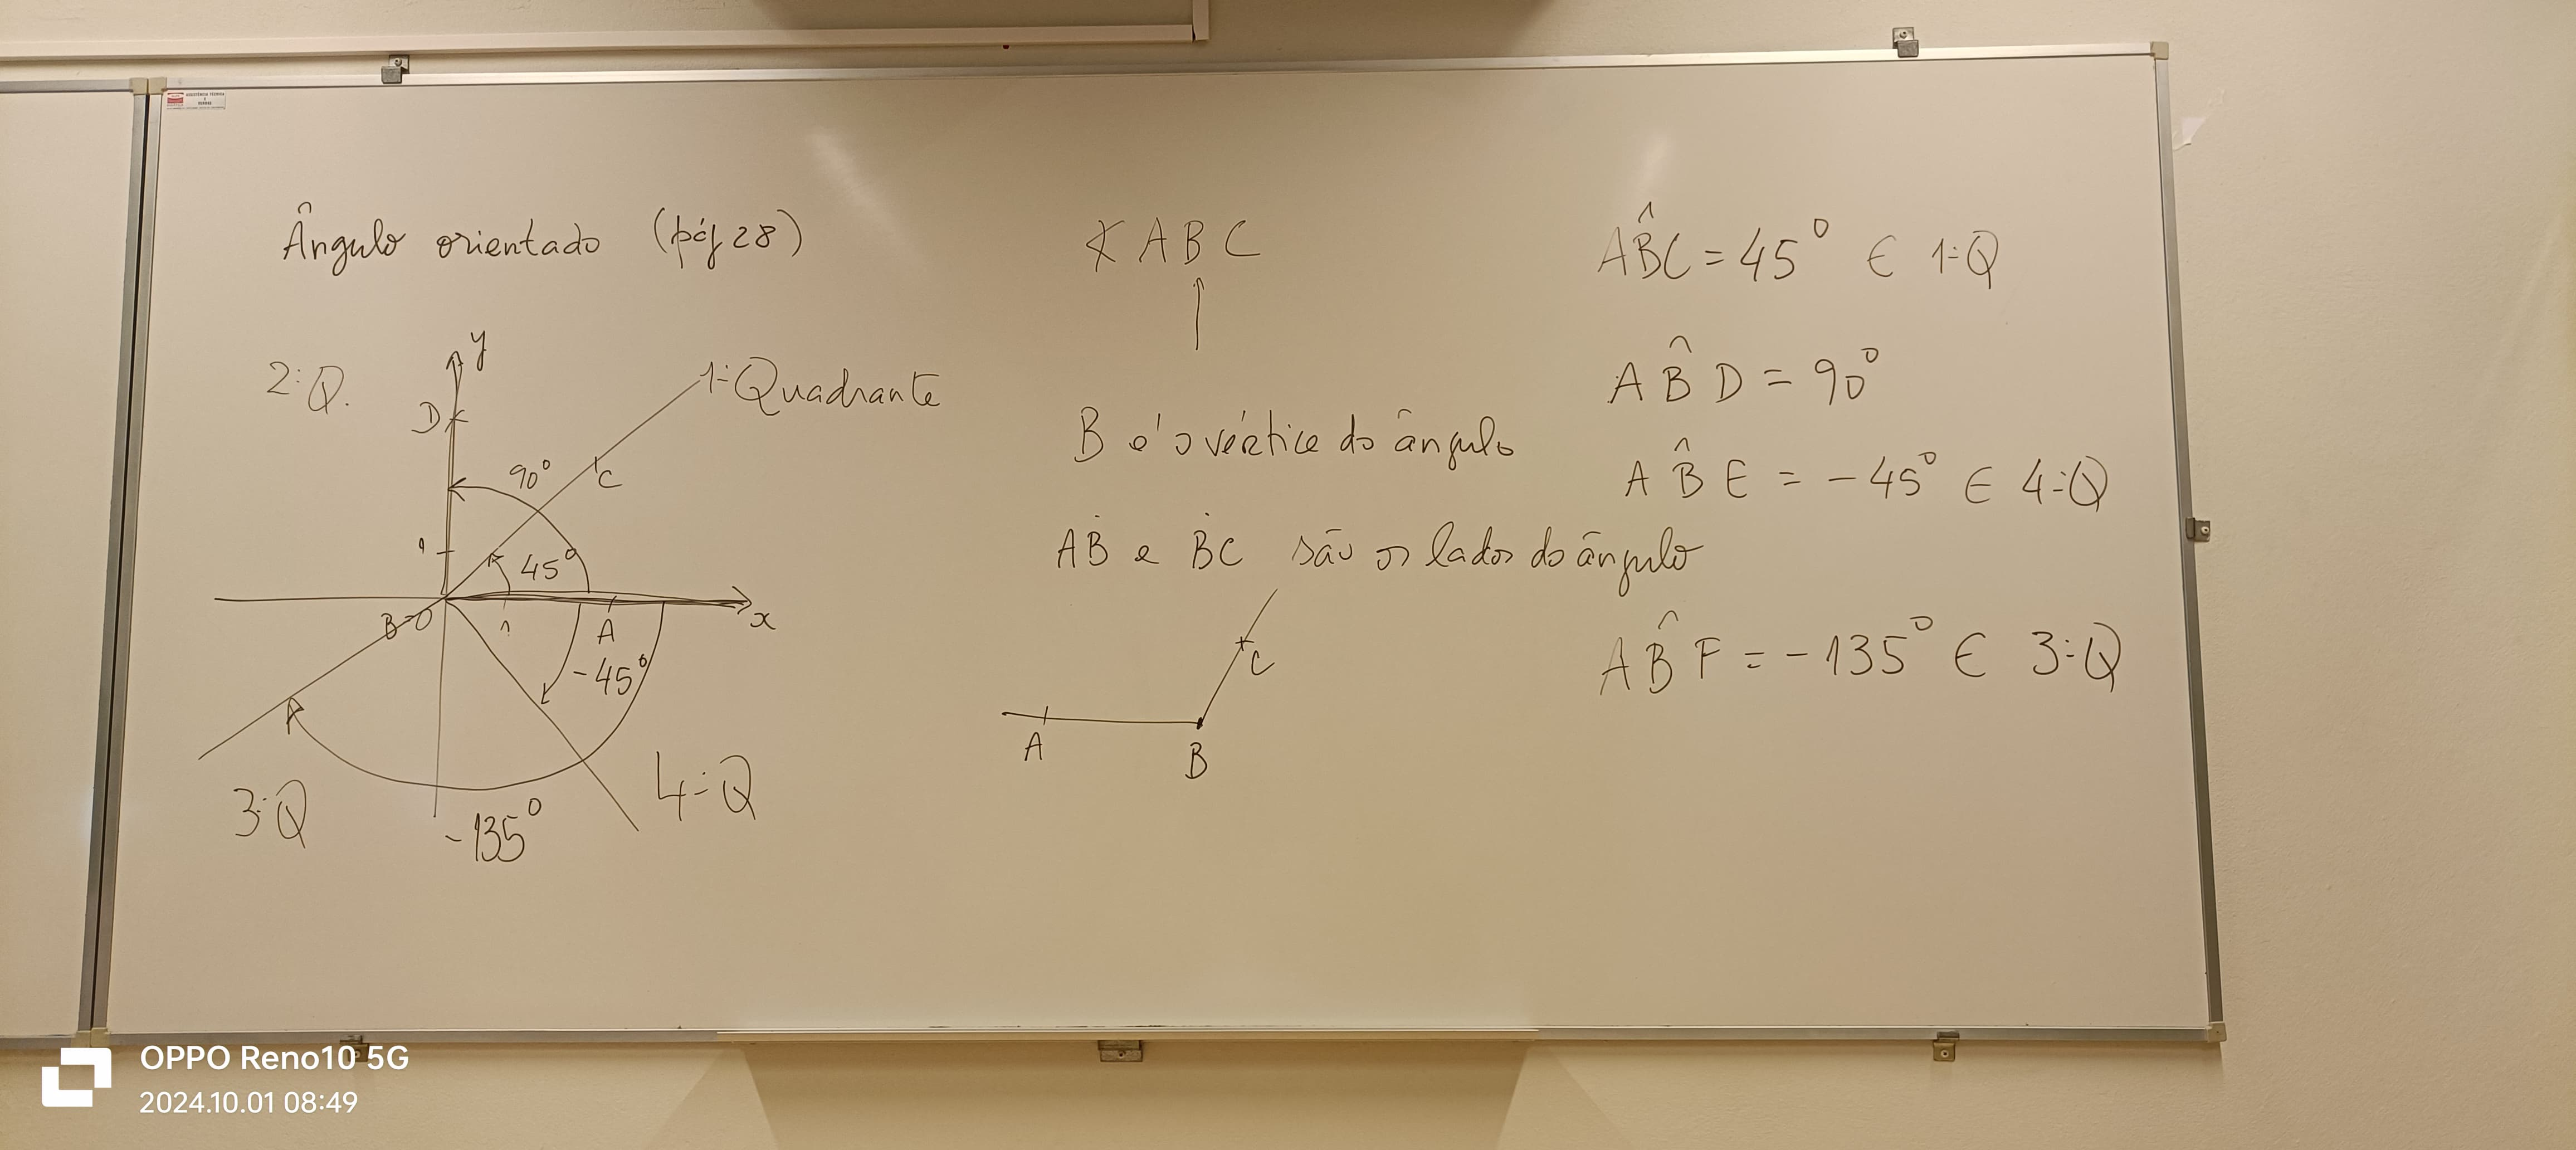 Ângulo orientado (pág 28)
2ºQ.
y
D
1ºQuadrante
90º
C
1
45º
B=O
1
A
x
-45º
F
3ºQ
-135º
4ºQ
∢ABC
B é o vértice do ângulo
ȦB e ḂC são os lados do ângulo
C
A
B
AB̂C = 45º ∈ 1ºQ
AB̂D = 90º
AB̂E = -45º ∈ 4ºQ
AB̂F = -135º ∈ 3ºQ
OPPO Reno10 5G
2024.10.01 08:49